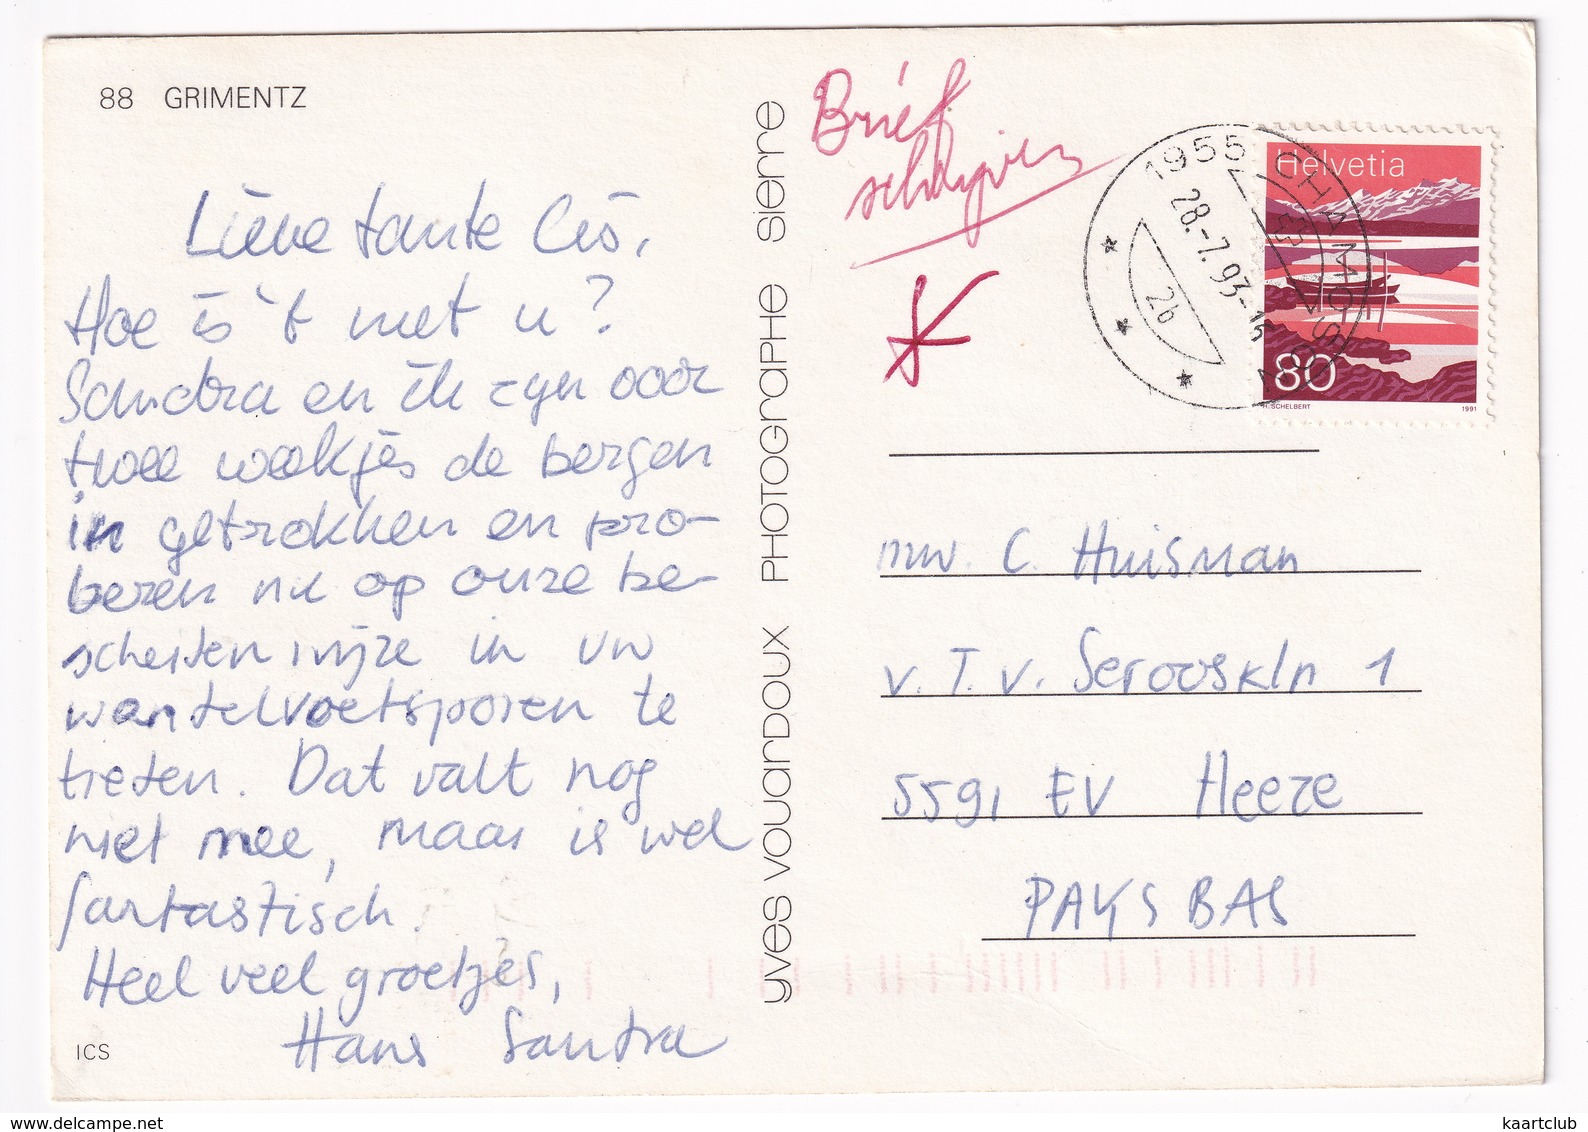 88 GRIMENTZ
Lieve tante Cis,
Hoe is 't met u?
Sandra en ik zijn voor
twee weekjes de bergen
in getrokken en pro-
beren nu op onze be-
scheiden wijze in uw
wandelvoetsporen te
treden. Dat valt nog
niet mee, maar is wel
fantastisch.
Heel veel groetjes,
Hans Sandra
ICS
YVES VOUARDOUX PHOTOGRAPHE SIERRE
Brief
schrijven
1955 CHAMOSON
28.-7.93-16
2b
Helvetia
80
H. SCHELBERT 1991
mw. C. Huisman
v. T. v. Serooskln 1
5591 EV Heeze
PAYS BAS
kaartclub
www.delcampe.net